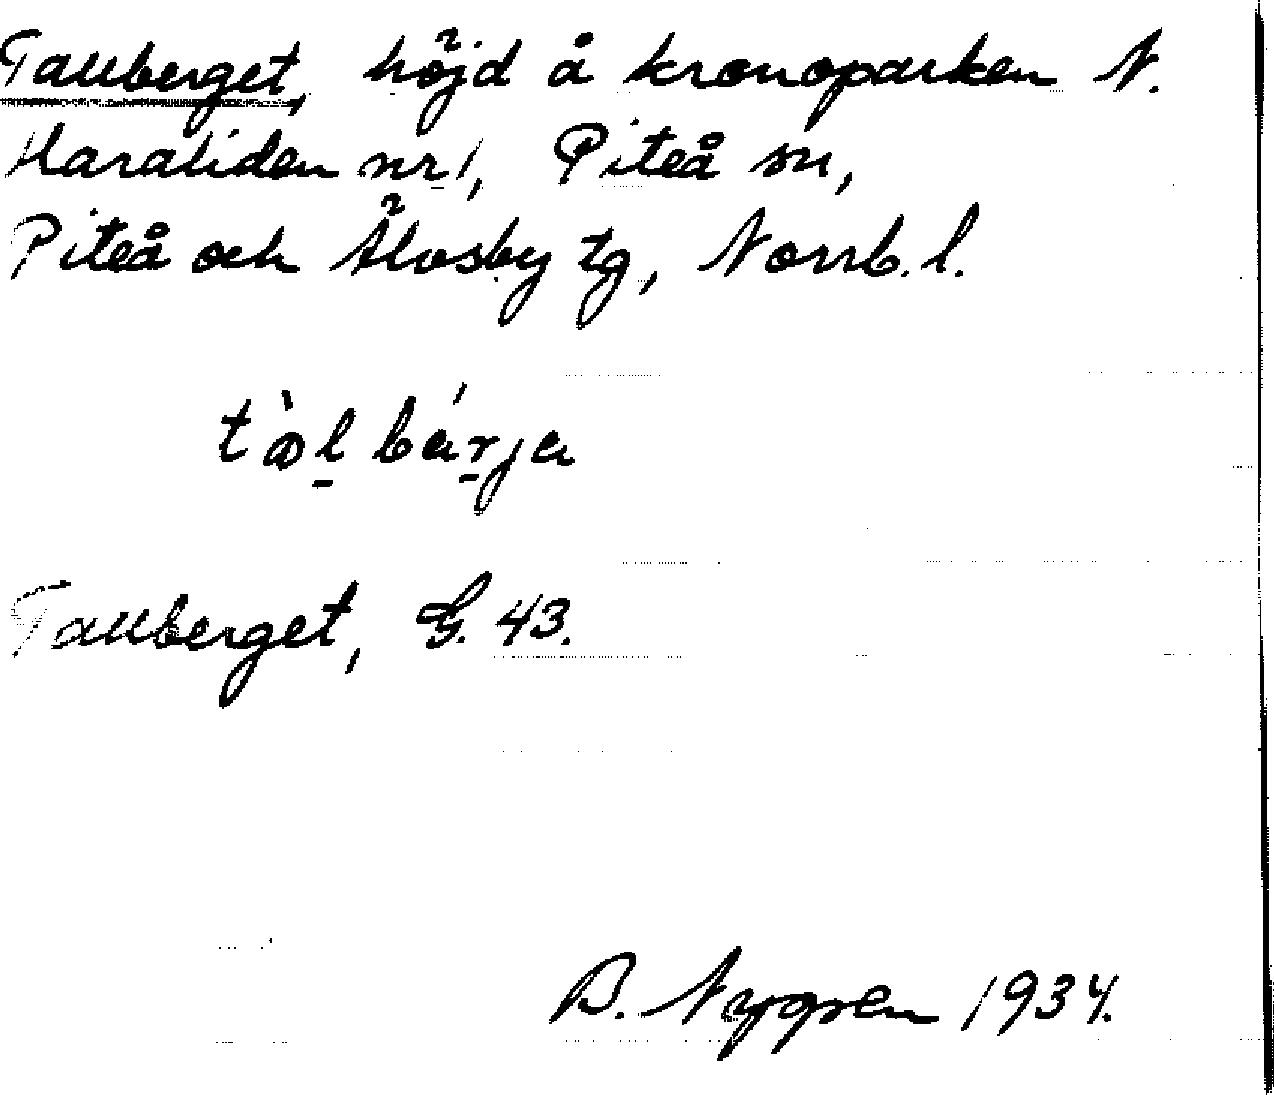 Tallberget, höjd å kronoparken N.
Haraliden nr 1, Piteå sn,
Piteå och Älvsby tg, Norrb. l.
Tallberget, G. 43.
B. Nygren 1934.